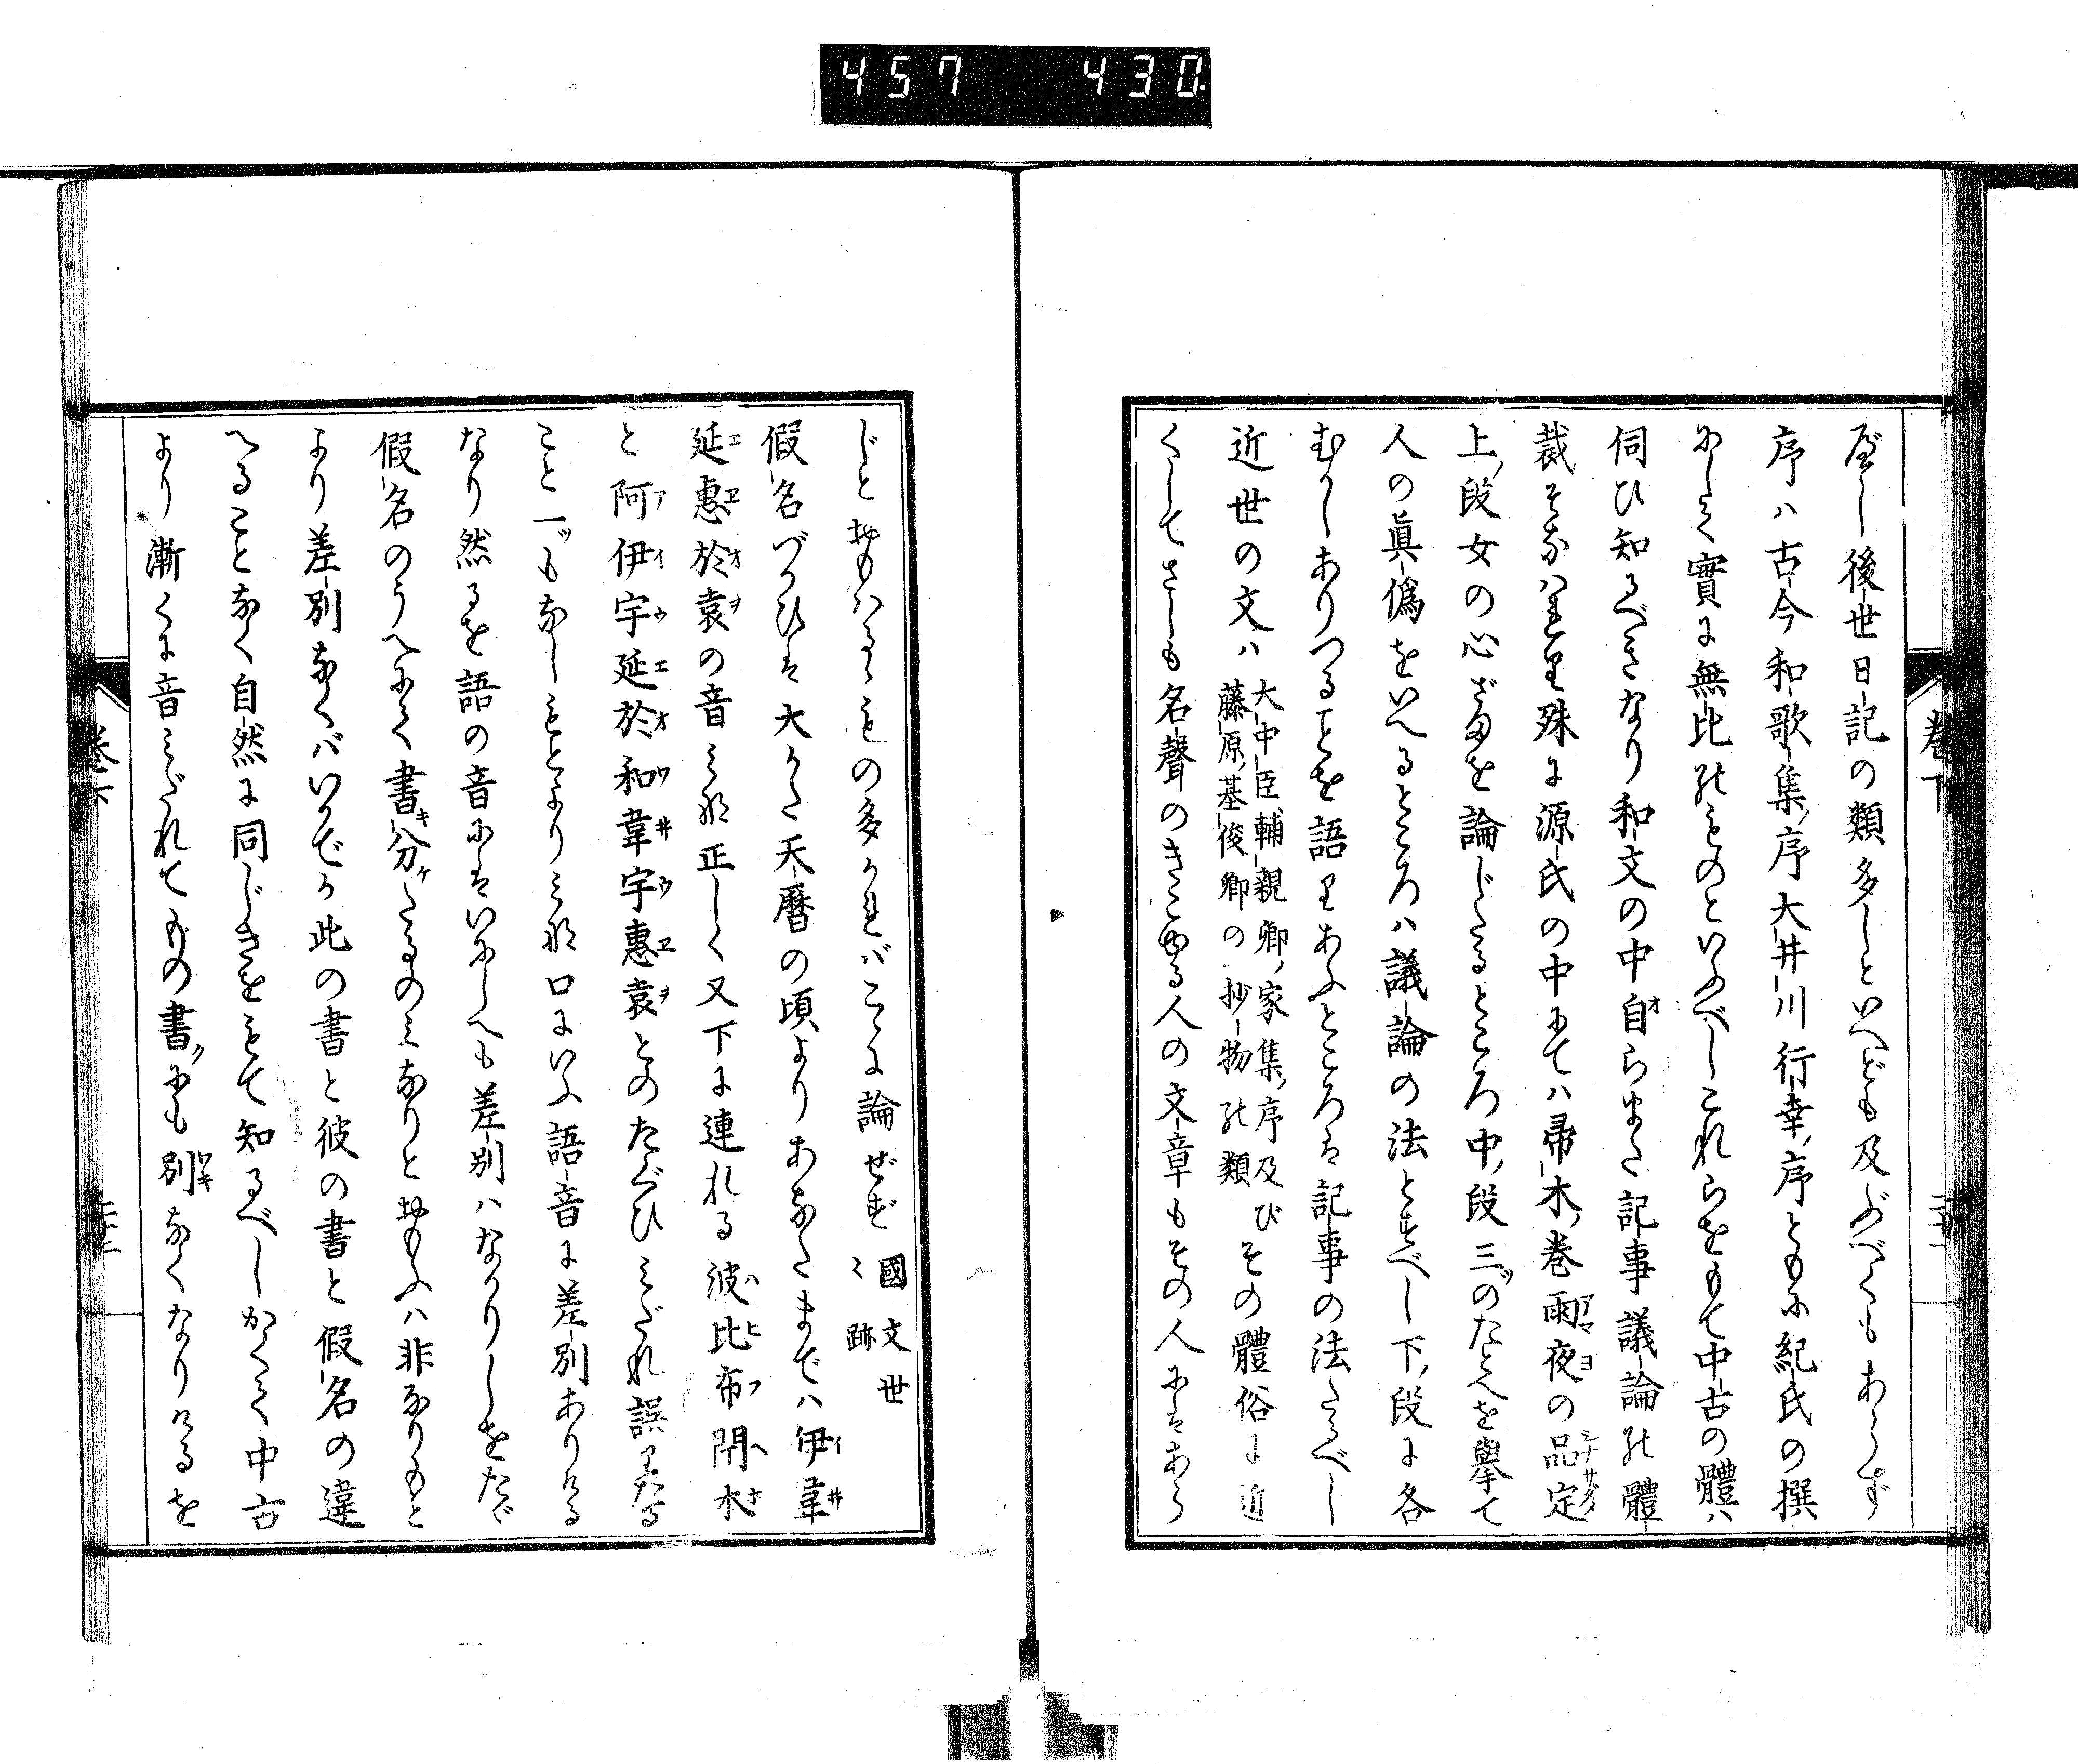 457 430
屋し後世日記の類多しといへども及ぶべくもあらず
序ハ古今和歌集序大井川行幸序ともに紀氏の撰
にして實に無比のものといふべしこれらをもて中古の體ハ
伺ひ知るべきなり和文の中自らまた記事議論の體
裁そなハれり殊に源氏の中にてハ帚木巻雨夜の品定
上段女の心ざまを論じたるところ中段三ツのたとへを擧て
人の眞僞をいへるところハ議論の法とすべし下段に各
むかしありつることを語りあふところは記事の法たるべし
近世の文ハ大中臣輔親卿家集序及び藤原基俊卿の抄物の類その體俗に近
くしてさしも名聲のきこゆる人の文章もその人にはあら
巻下
じとおもハるゝもの多かれバこゝに論ぜず國文世々跡
假名づかひは大かた天曆の頃よりあなたまでハ伊韋
延惠於袁の音みな正しく又下に連れる波比布閇本
と阿伊宇延於和韋宇惠袁とのたぐひみだれ誤りたる
こと一ツもなしもとよりみな口にいふ語音に差別ありける
なり然るを語の音にはいにしへも差別ハなかりしをたゞ
假名のうへにて書分たるのみなりとおもふハ非なりもと
より差別なくバいかでか此の書と彼の書と假名の違
へることなく自然に同じきをもて知るべしかくて中古
より漸くに音みだれてもの書にも別なくなりけるを
巻下